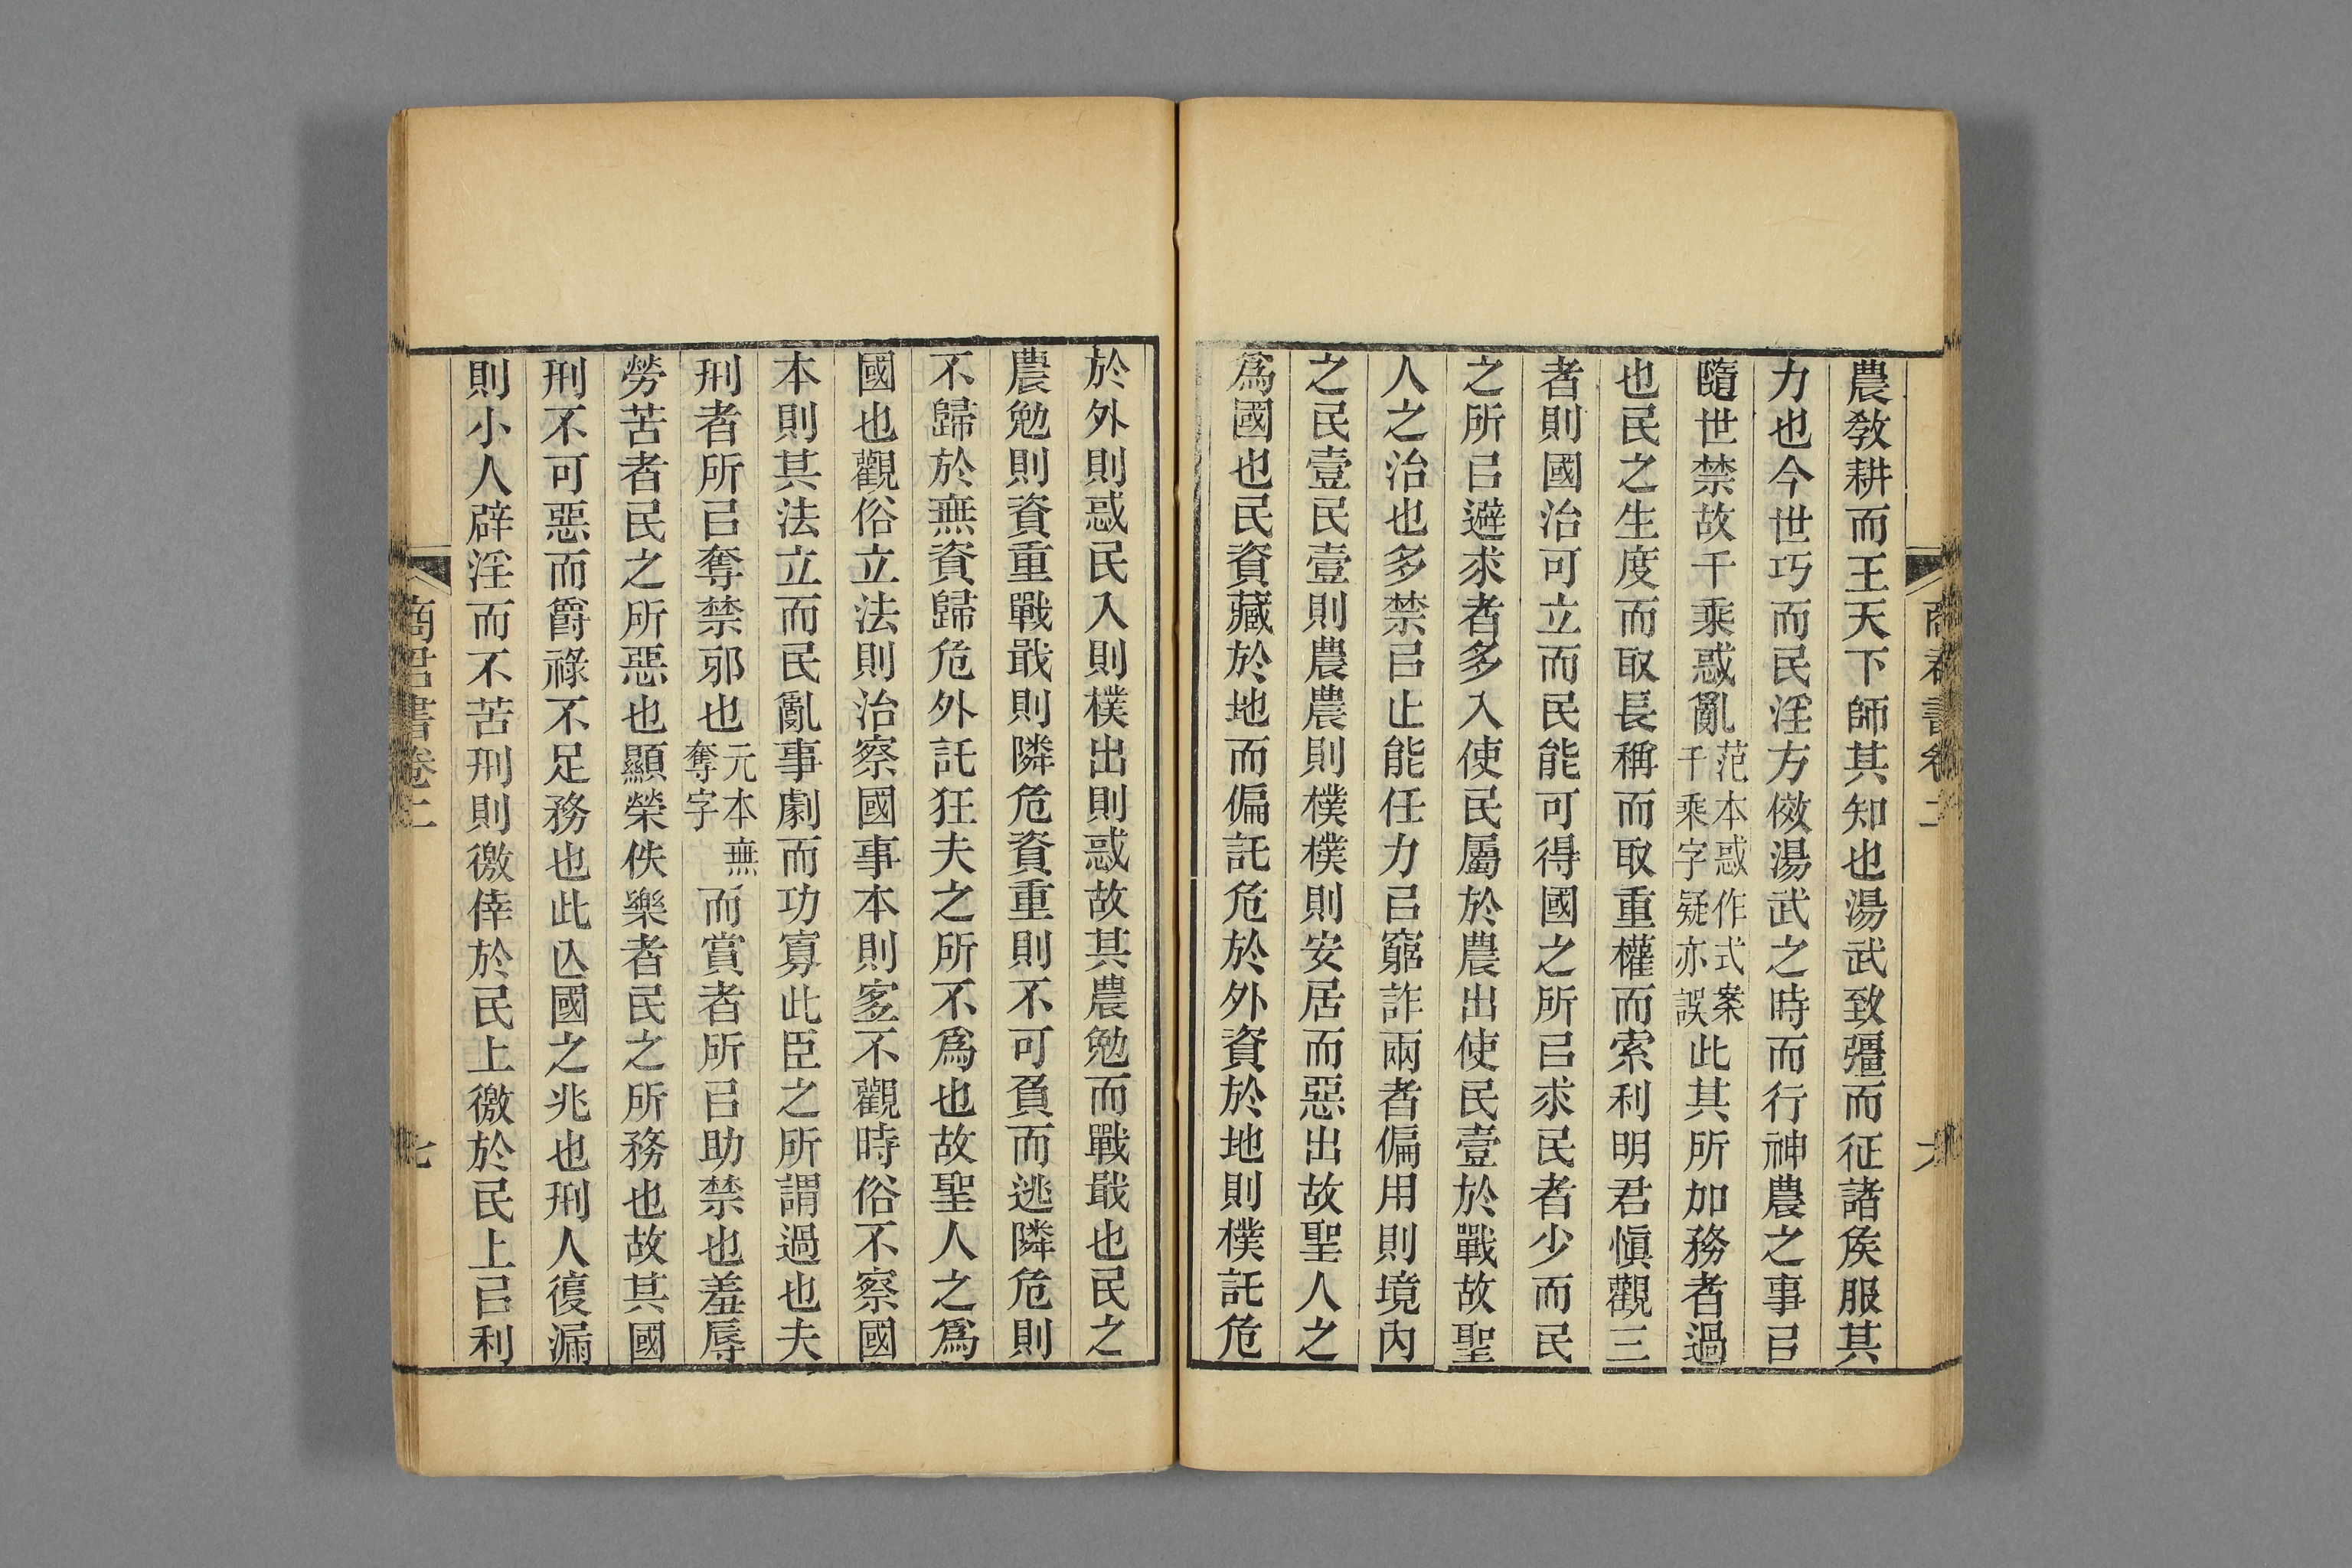 農敎耕而王天下師其知也湯武致彊而征諸矦服其
力也今世巧而民淫方傚湯武之時而行神農之事㠯
隨世禁故千乘惑亂范本惑作式案千乘字疑亦誤此其所加務者過
也民之生度而取長稱而取重權而索利明君愼觀三
者則國治可立而民能可得國之所㠯求民者少而民
之所㠯避求者多入使民屬於農出使民壹於戰故聖
人之治也多禁㠯止能任力㠯窮詐兩者偏用則境內
之民壹民壹則農農則樸樸則安居而惡出故聖人之
爲國也民資藏於地而偏託危於外資於地則樸託危
於外則惑民入則樸出則惑故其農勉而戰戢也民之
農勉則資重戰戢則隣危資重則不可負而逃隣危則
不歸於無資歸危外託狂夫之所不爲也故聖人之爲
國也觀俗立法則治察國事本則宐不觀時俗不察國
本則其法立而民亂事劇而功寡此臣之所謂過也夫
刑者所㠯奪禁邪也元本無奪字而賞者所㠯助禁也羞辱
勞苦者民之所惡也顯榮佚樂者民之所務也故其國
刑不可惡而爵祿不足務也此亾國之兆也刑人復漏
則小人辟淫而不苦刑則徼倖於民上徼於民上㠯利
商君書卷二
七